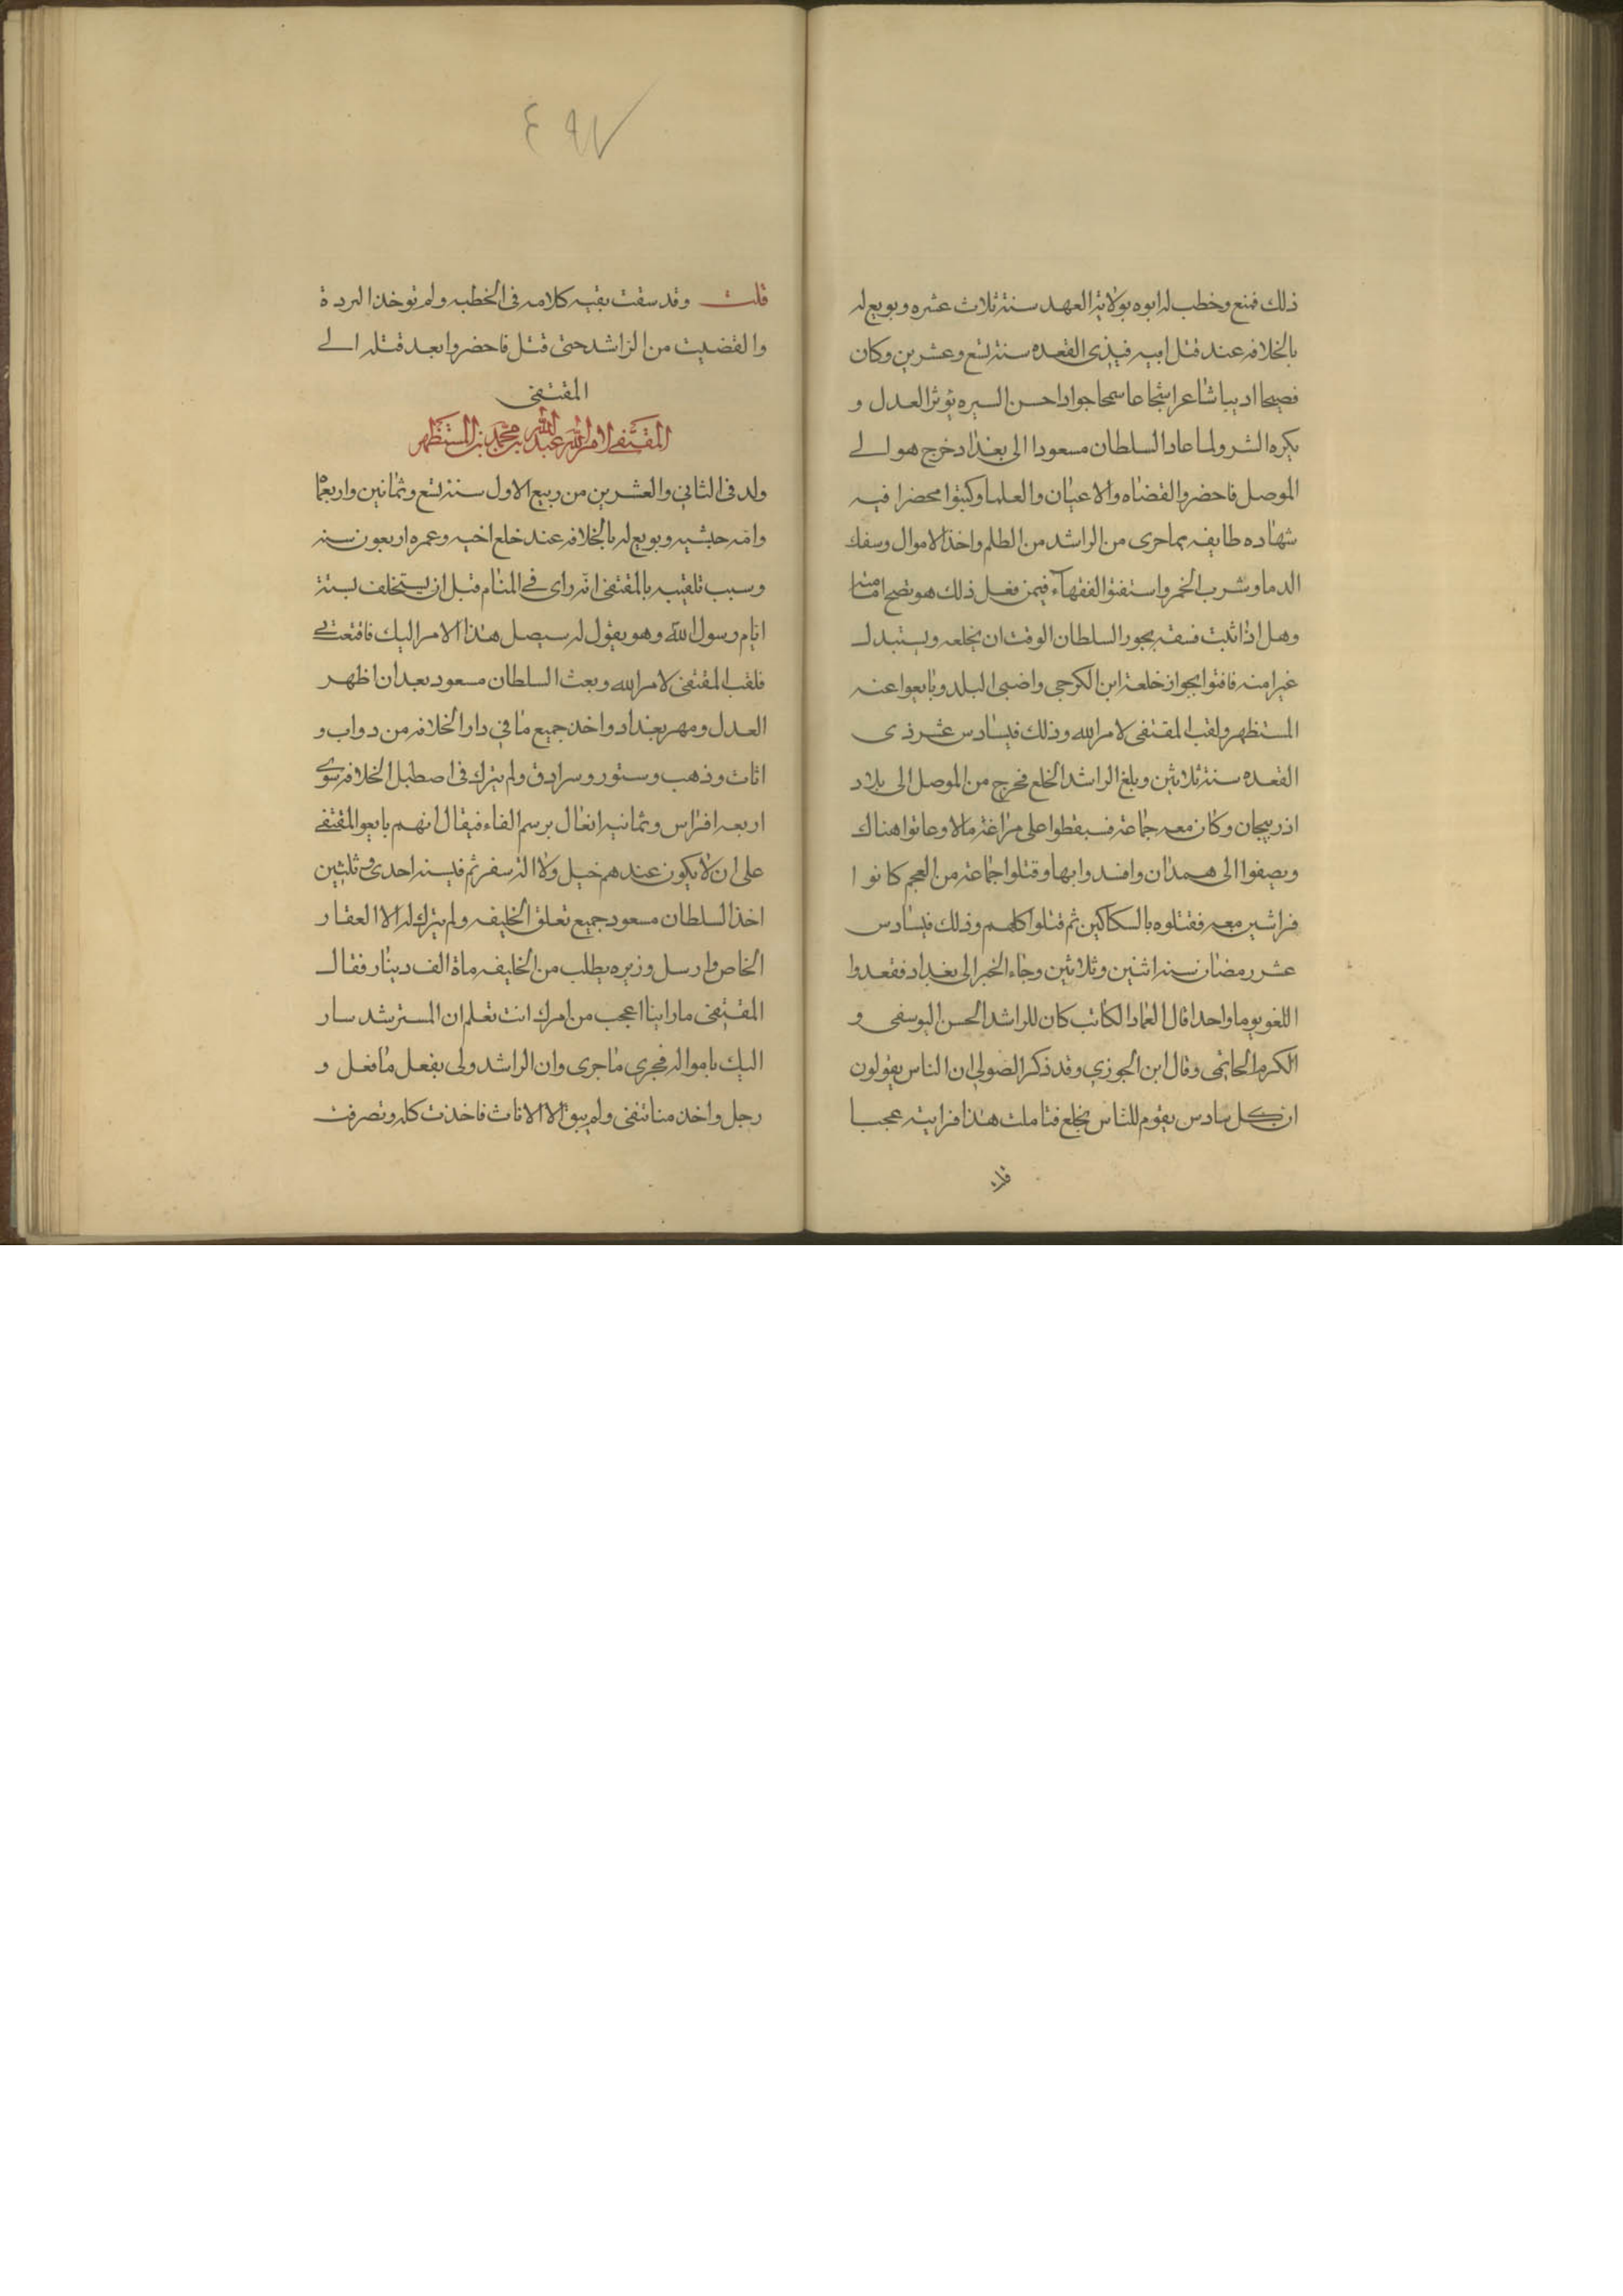 ذلك فمنع وخطب له ابوه بولاية العهد سنة ثلاث عشره وبويع له
بالخلافه عند قتل ابيه في ذى القعده سنة تسع وعشرين وكان
فصيحا اديبا شاعرا شجاعا سمحا جوادا حسن السيره يوثر العدل و
يكره الشر ولما عاد السلطان مسعودا الى بغداد خرج هو الى
الموصل فاحضر والقضاه والاعيان والعلما وكتبوا محضرا فيه
شهاده طايفه بما جرى من الراشد من الظلم واخذ الاموال وسفك
الدما وشرب الخمر واستفتوا الفقهاء فيمن فعل ذلك هو تصح امامته
وهل اذا ثبت فسقه يجوز السلطان الوقت ان يخلعه ويستبدل
غيرا منه فافتوا بجواز خلعة ابن الكرجي واضبى البلد وبايعوا عنه
المستظهر ولقب المقتفى لامر الله وذلك في سادس عشر ذى
القعده سنة ثلاثين وبلغ الراشد الخلع فخرج من الموصل الى بلاد
اذربيجان وكان معه جماعة فسقطوا على مراغة مالا وعاثوا هناك
وبصفوا الى همدان وافسدوا بها وقتلوا جماعة من العجم كانوا
فراشين معه فقتلوه بالسكاكين ثم قتلوا كلهم وذلك في سادس
عشر رمضان سنه اثنين وثلاثين وجاء الخبر الى بغداد فقعدوا
اللغو يوما واحدا قال العماد الكاتب كان للراشد الحسن اليوسفى و
الكرم الحاتمى وقال ابن الجوزي وقد ذكر الصولي ان الناس يقولون
ان كل سادس يقوم للناس يخلع فتاملت هذا فرايته عجبا
٤٩٧
قلت وقد سقت بقيه كلامه فى الخطبه ولم توخذ البردة
والقضيب من الراشد حتى قتل فاحضروا بعد قتله الى
المقتفى
المقتفى لامر الله عبد الله بن محمد بن المستظهر
ولد فى الثاني والعشرين من ربيع الاول سنة تسع وثمانين واربعما
وامه حبشيه وبويع له بالخلافه عند خلع اخيه وعمره اربعون سنه
وسبب تلقيبه بالمقتفى انه راى في المنام قبل ان يستخلف بستة
ايام رسول الله وهو يقول له سيصل هذا الامر اليك فاقتف بي
فلقب المقتفى لامر الله وبعث السلطان مسعود بعد ان اظهر
العدل ومهر بغداد واخذ جميع ما في دار الخلافه من دواب و
اثاث وذهب وستور وسرادق ولم يترك فى اصطبل الخلافه سوى
اربعه افراس وثمانيه ابغال برسم الماء فيقال انهم بايعوا المقتفى
على ان لا يكون عندهم خيل ولا الة سفر ثم في سنه احدى وثلثين
اخذ السلطان مسعود جميع تعلق الخليفه ولم يترك له الا العقار
الخاص وارسل وزيره يطلب من الخليفه ماة الف دينار فقال
المقتفى ما راينا اعجب من امرك انت تعلم ان المسترشد سار
اليك بامواله فجرى ما جرى وان الراشد ولى بفعل ما فعل و
رجل واخذ منا تنفى ولم يبق الا الاثاث فاخذت كله وتصرفت